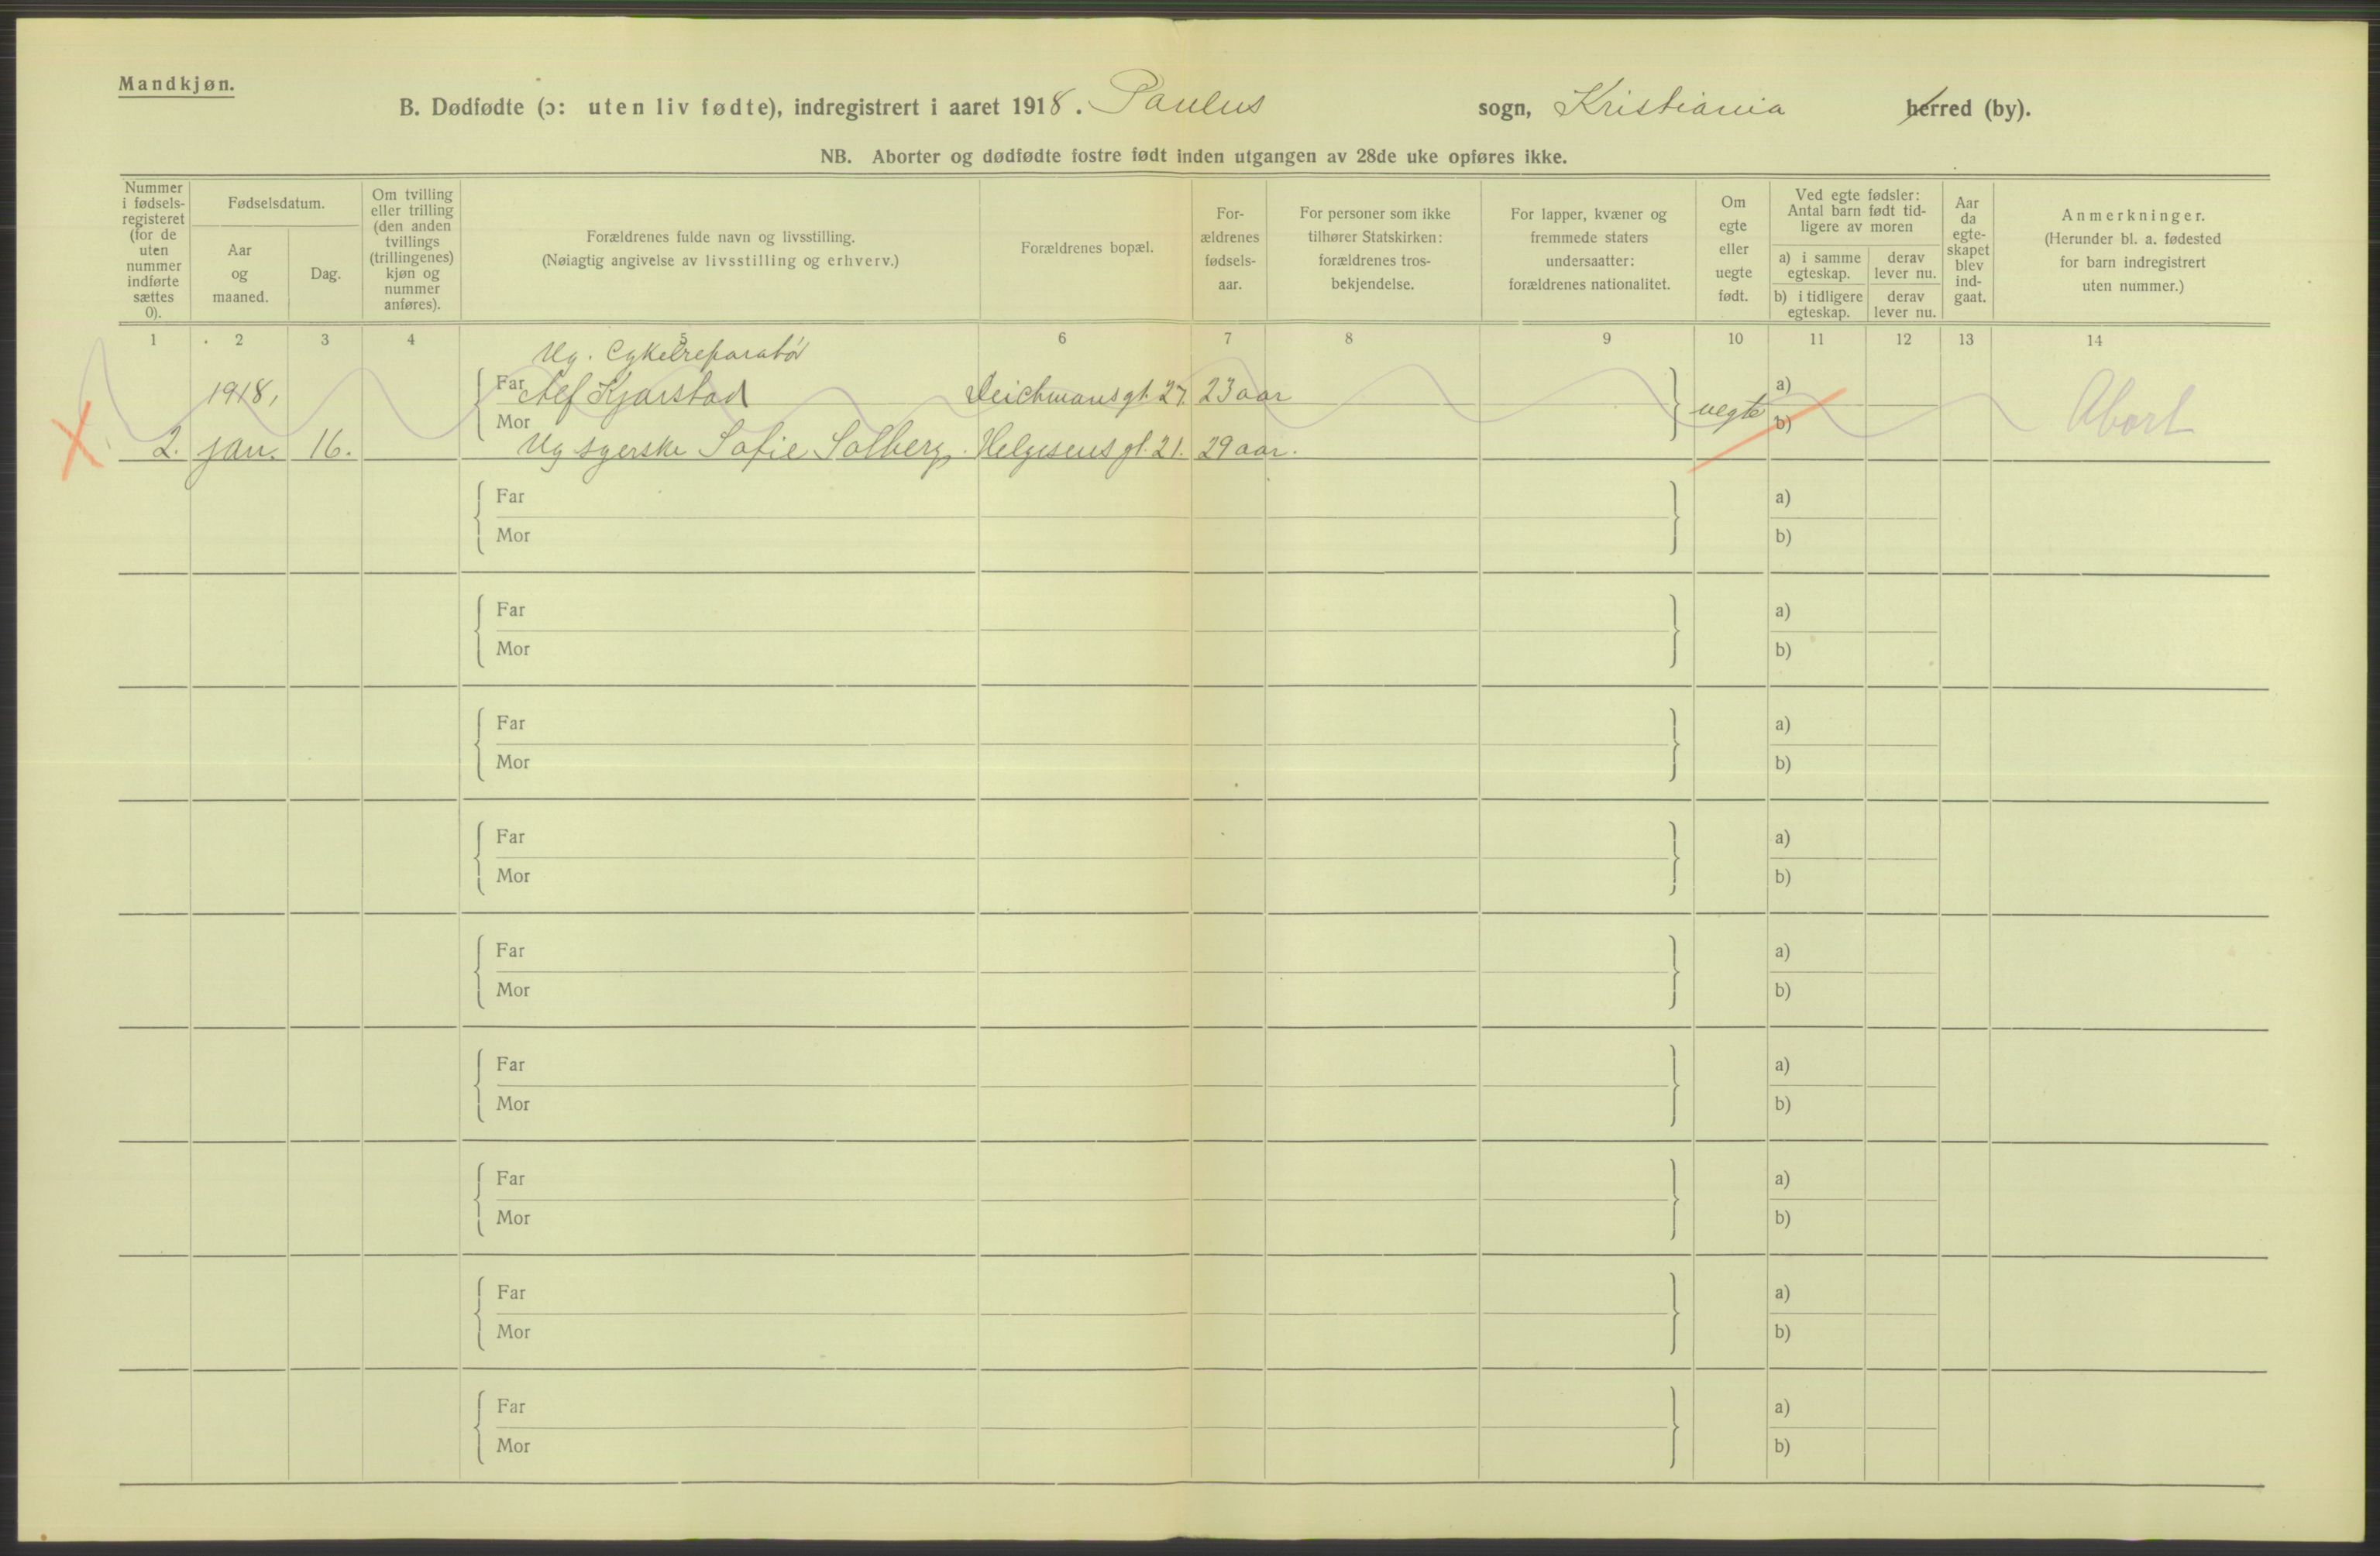 Mandkjøn.
B. Dødfødte (ɔ: uten liv fødte), indregistrert i aaret 1918. Paulus sogn, Kristiania herred (by).
NB. Aborter og dødfødte fostre født inden utgangen av 28de uke opføres ikke.
Nummer i fødsels-registeret (for de uten nummer indførte sættes 0).
Fødselsdatum.
Aar og maaned.
Dag.
Om tvilling eller trilling (den anden tvillings (trillingenes) kjøn og nummer anføres).
Forældrenes fulde navn og livsstilling.
(Nøiagtig angivelse av livsstilling og erhverv.)
Forældrenes bopæl.
For-ældrenes fødsels-aar.
For personer som ikke tilhører Statskirken: forældrenes tros-bekjendelse.
For lapper, kvæner og fremmede staters undersaatter: forældrenes nationalitet.
Om egte eller uegte født.
Ved egte fødsler: Antal barn født tid-ligere av moren
a) i samme egteskap.
derav lever nu.
b) i tidligere egteskap.
derav lever nu.
Aar da egte-skapet blev ind-gaat.
Anmerkninger.
(Herunder bl. a. fødested for barn indregistrert uten nummer.)
1 2 3 4 5 6 7 8 9 10 11 12 13 14
Ug. Cykelreparatør
1918, Far Alf Kjarstad Deichmansgt. 27. 23 aar a)
Mor uegte b) Abort
2. jan. 16. Ug syerske Sofie Solberg. Helgesens gt. 21. 29 aar.
Far a)
Mor b)
Far a)
Mor b)
Far a)
Mor b)
Far a)
Mor b)
Far a)
Mor b)
Far a)
Mor b)
Far a)
Mor b)
Far a)
Mor b)
Far a)
Mor b)